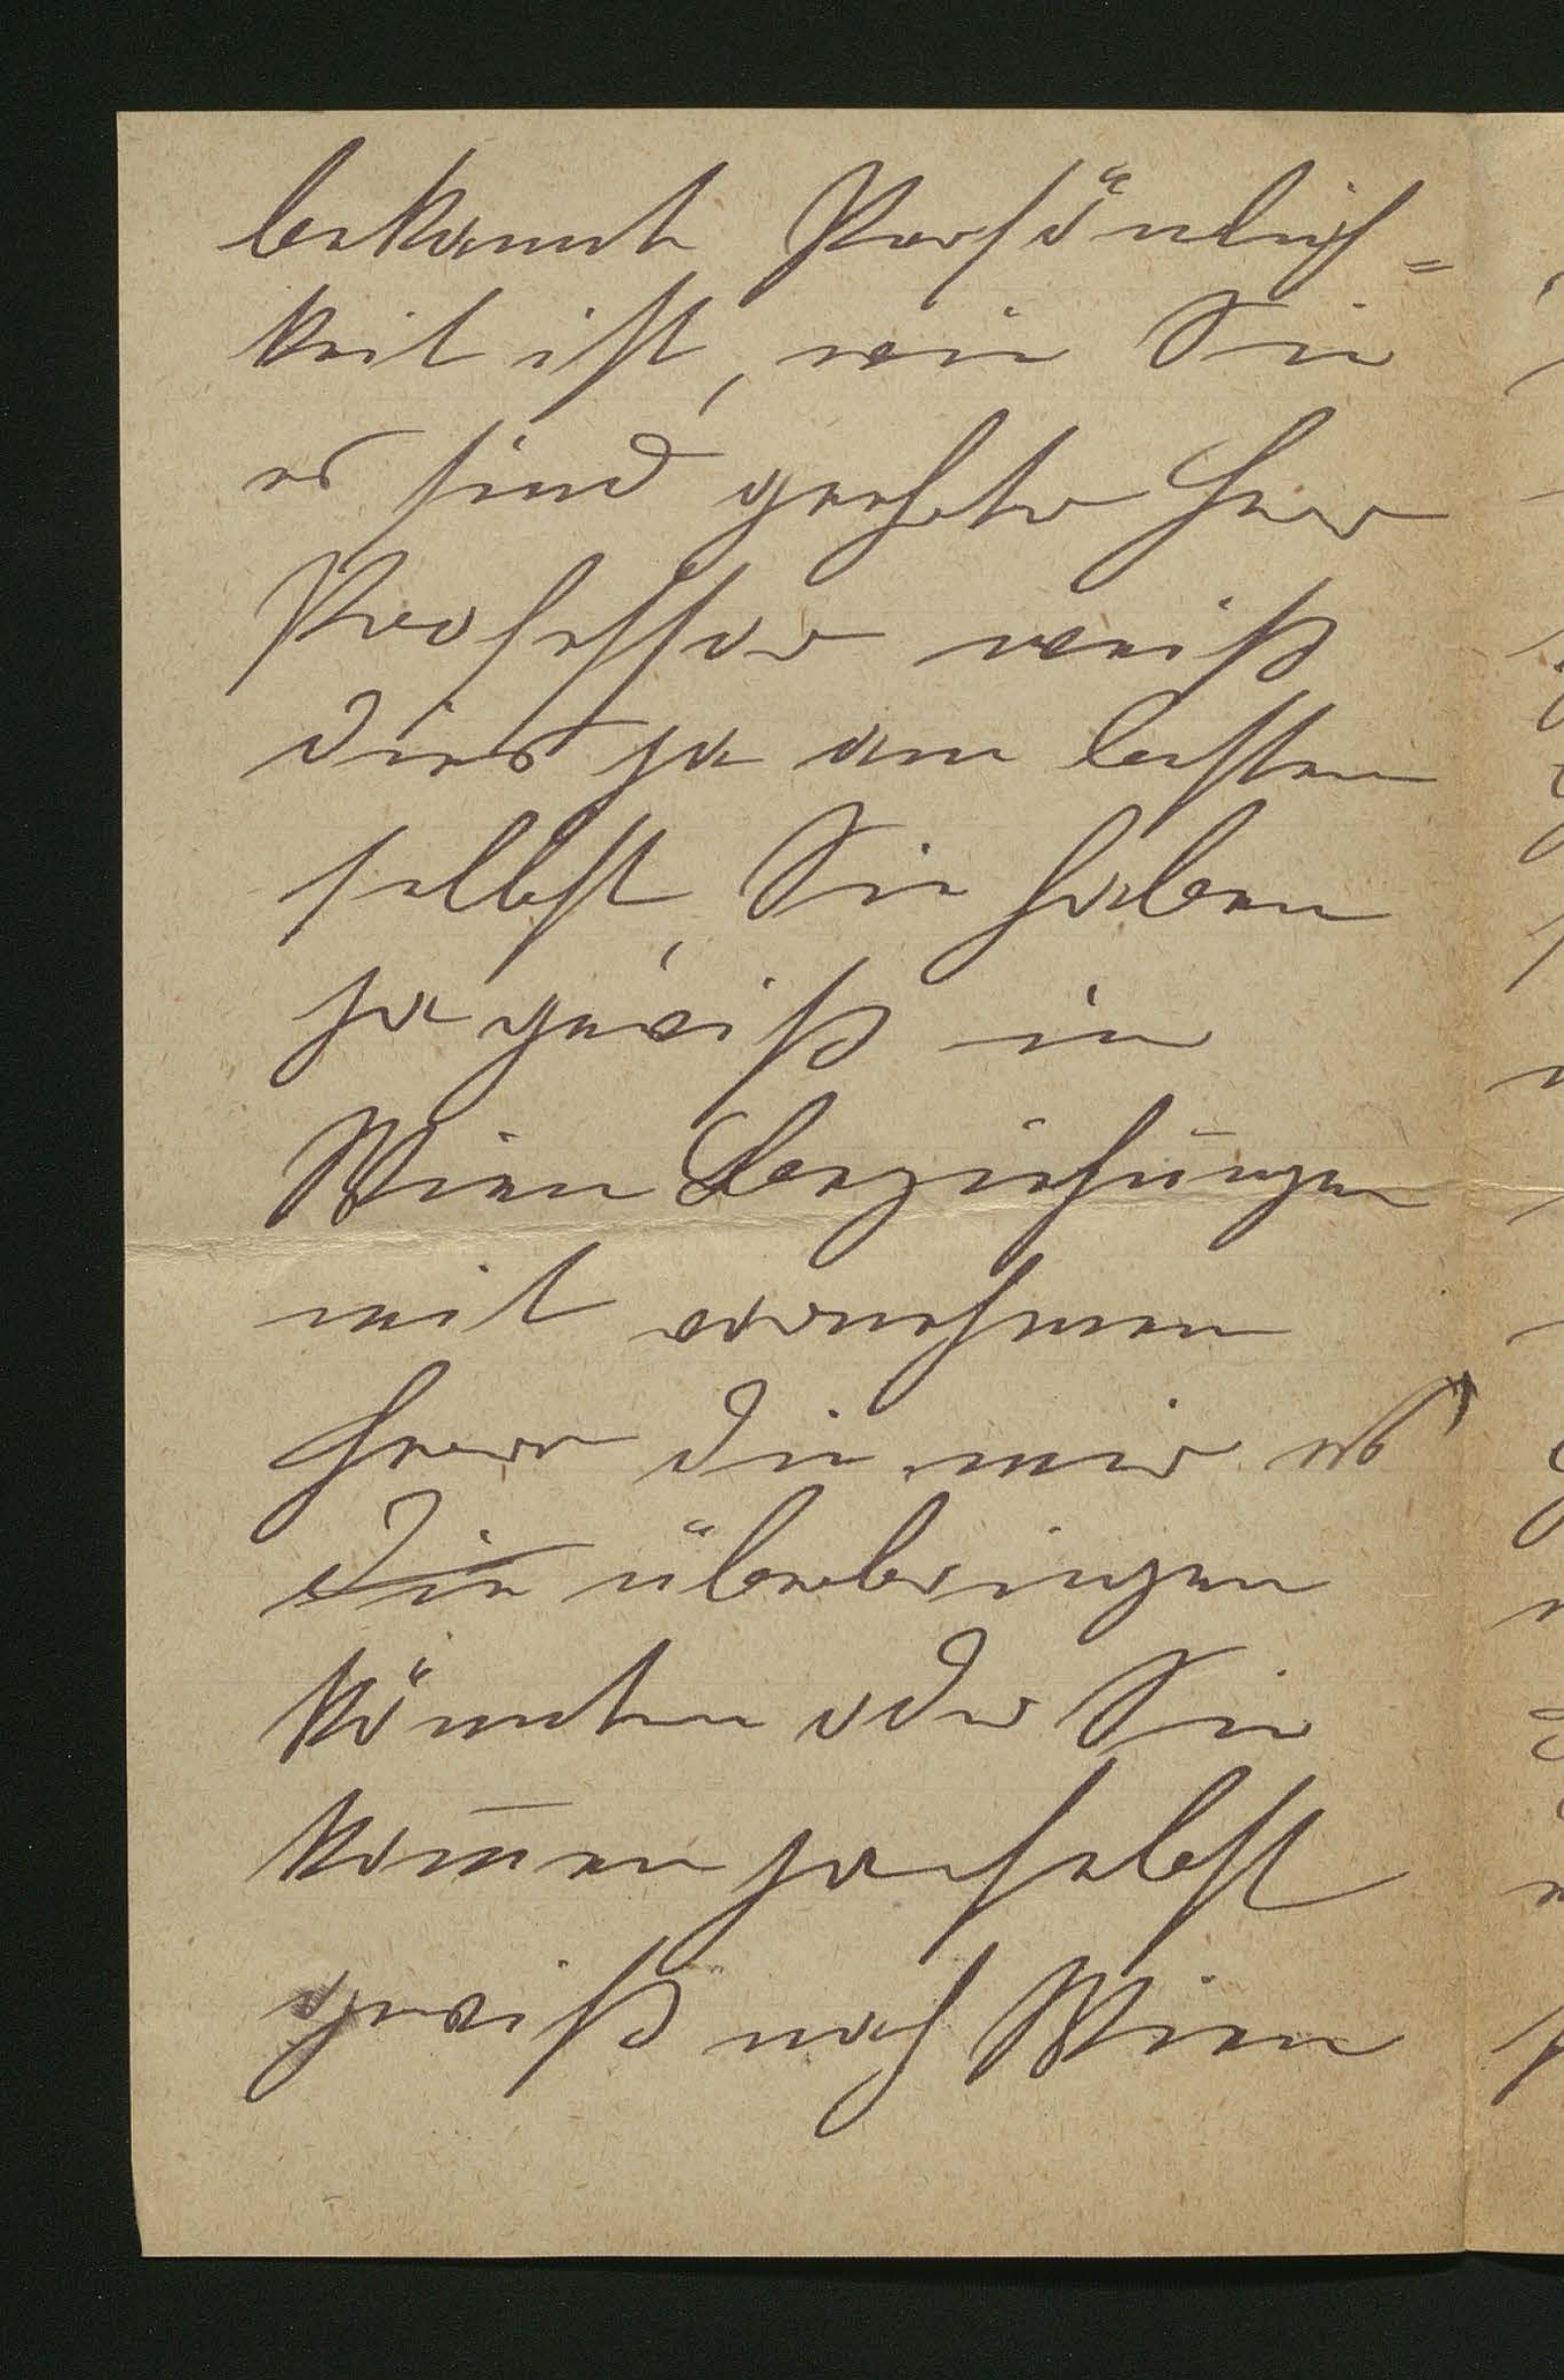 bekannte Persönlich=
keit ist, wie Sie
es sind geehrter Herr
Professor weiß
dies ja am besten
selbst, Sie haben
ja gewiß in
Wien Beziehungen
mit vornehmen
Herrn die mir es
die überbringen
könnten oder Sie
kom̅en ja selbst
gewiß nach Wien